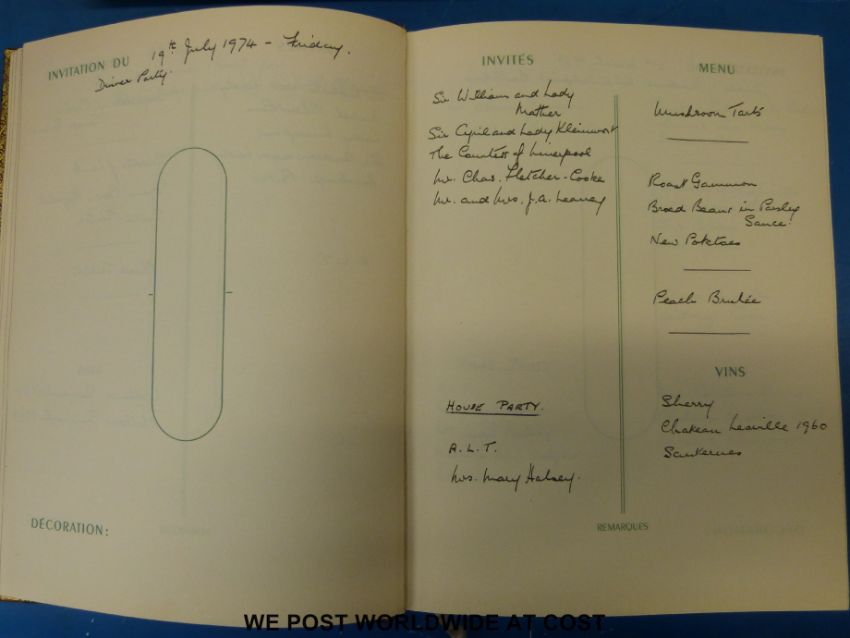 INVITATION DU 19th July 1974 - Friday.
Dinner Party.
DÉCORATION:
INVITÉS
Sir William and Lady
Mather
Sir Cyril and Lady Kleinwort
The Countess of Liverpool
Mr. Chas. Fletcher-Cooke
Mr. and Mrs. J.A. Leavey
HOUSE PARTY.
A.L.T.
Mrs. Mary Halsey.
MENU
Mushroom Tarts
Roast Gammon
Broad Beans in Parsley
Sauce.
New Potatoes
Peach Brulée
VINS
Sherry
Chateau Leoville 1960
Sauternes
REMARQUES
WE POST WORLDWIDE AT COST